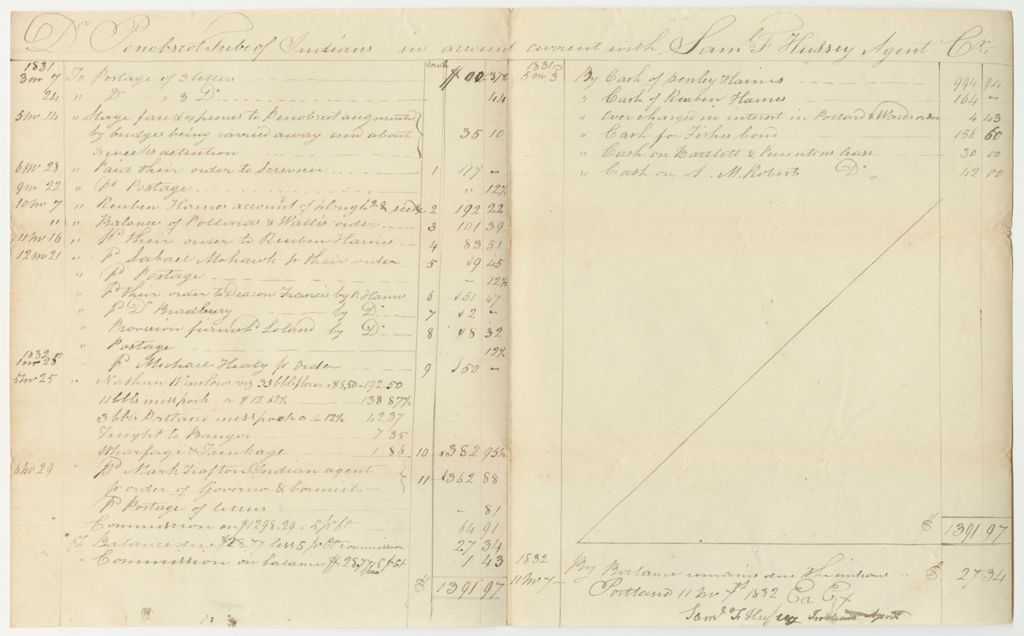 Dr Penobscot Tribe of Indians in account current with Saml F Hussey Agent Cr
1831
3 mo 7 To Postage of 3 letters $ 00 37½
24 " Do " 3 Do 44
5 mo 14 " Stage fare & expenses to Penobscot augmented
by bridges being carried away and about
3 weeks detention 35 10
6 mo 28 " Paid their order to Scrivner 1
9 mo 22 " Pd Postage " 12½
10 mo 7 " Reuben Haines account of plough & seeds 2 192 22
" " Balance of Pollards & Wallis order 3 101 39
11 mo 16 " Pd their order to Reuben Haines 4 83 51
12 mo 21 " Pd Sabael Mohawk pr their order 5 9 45
" Pd Postage - 12½
" Pd their order to Deacon Francis by R Haines 6 51 47
" Pd Do Bradbury by Do 7 2 -
" Provision furnishd Soland by Do 8 8 32
" Postage 12½
1832
1 mo 28 " Pd Michael Healy pr order 9 50 -
5 mo 25 " Nathan Winslow 35 bbl flour $5,50 192.50
11 bbls mess pork a $12 62½ 138 87½
3 bbls Portland mess pork a 14 12½ 42 37
Freight to Bangor 7 35
Wharfage & Truckage 1 86 10 382 95½
6 mo 29 Pd Mark Trafton Indian agent
pr order of Governor & Council 11 362 88
Pd Postage of letters - 81
Commission on $1298.29 a 5 pr Ct 64 91
Balance due $28.77 less 5 pr Ct commission 27 34
Commission on balance $28.77 5 pr Ct 1 43
$ 1391 97
1831
5 mo 3 By Cash of Haines 994 94
" Cash of Reuben Haines 164 -
" Over charge in interest in Pollard & order 4 43
" Cash for Fisher bond 156 60
" Cash on Bartlett & lease 30 00
" Cash on A. M Roberts Do 42 00
$ 1391 97
1832
11 mo 7 By Balance remains due the indians $ 27 34
Portland 11 mo 7th 1832 Er Ex
Saml F Hussey Indian Agent